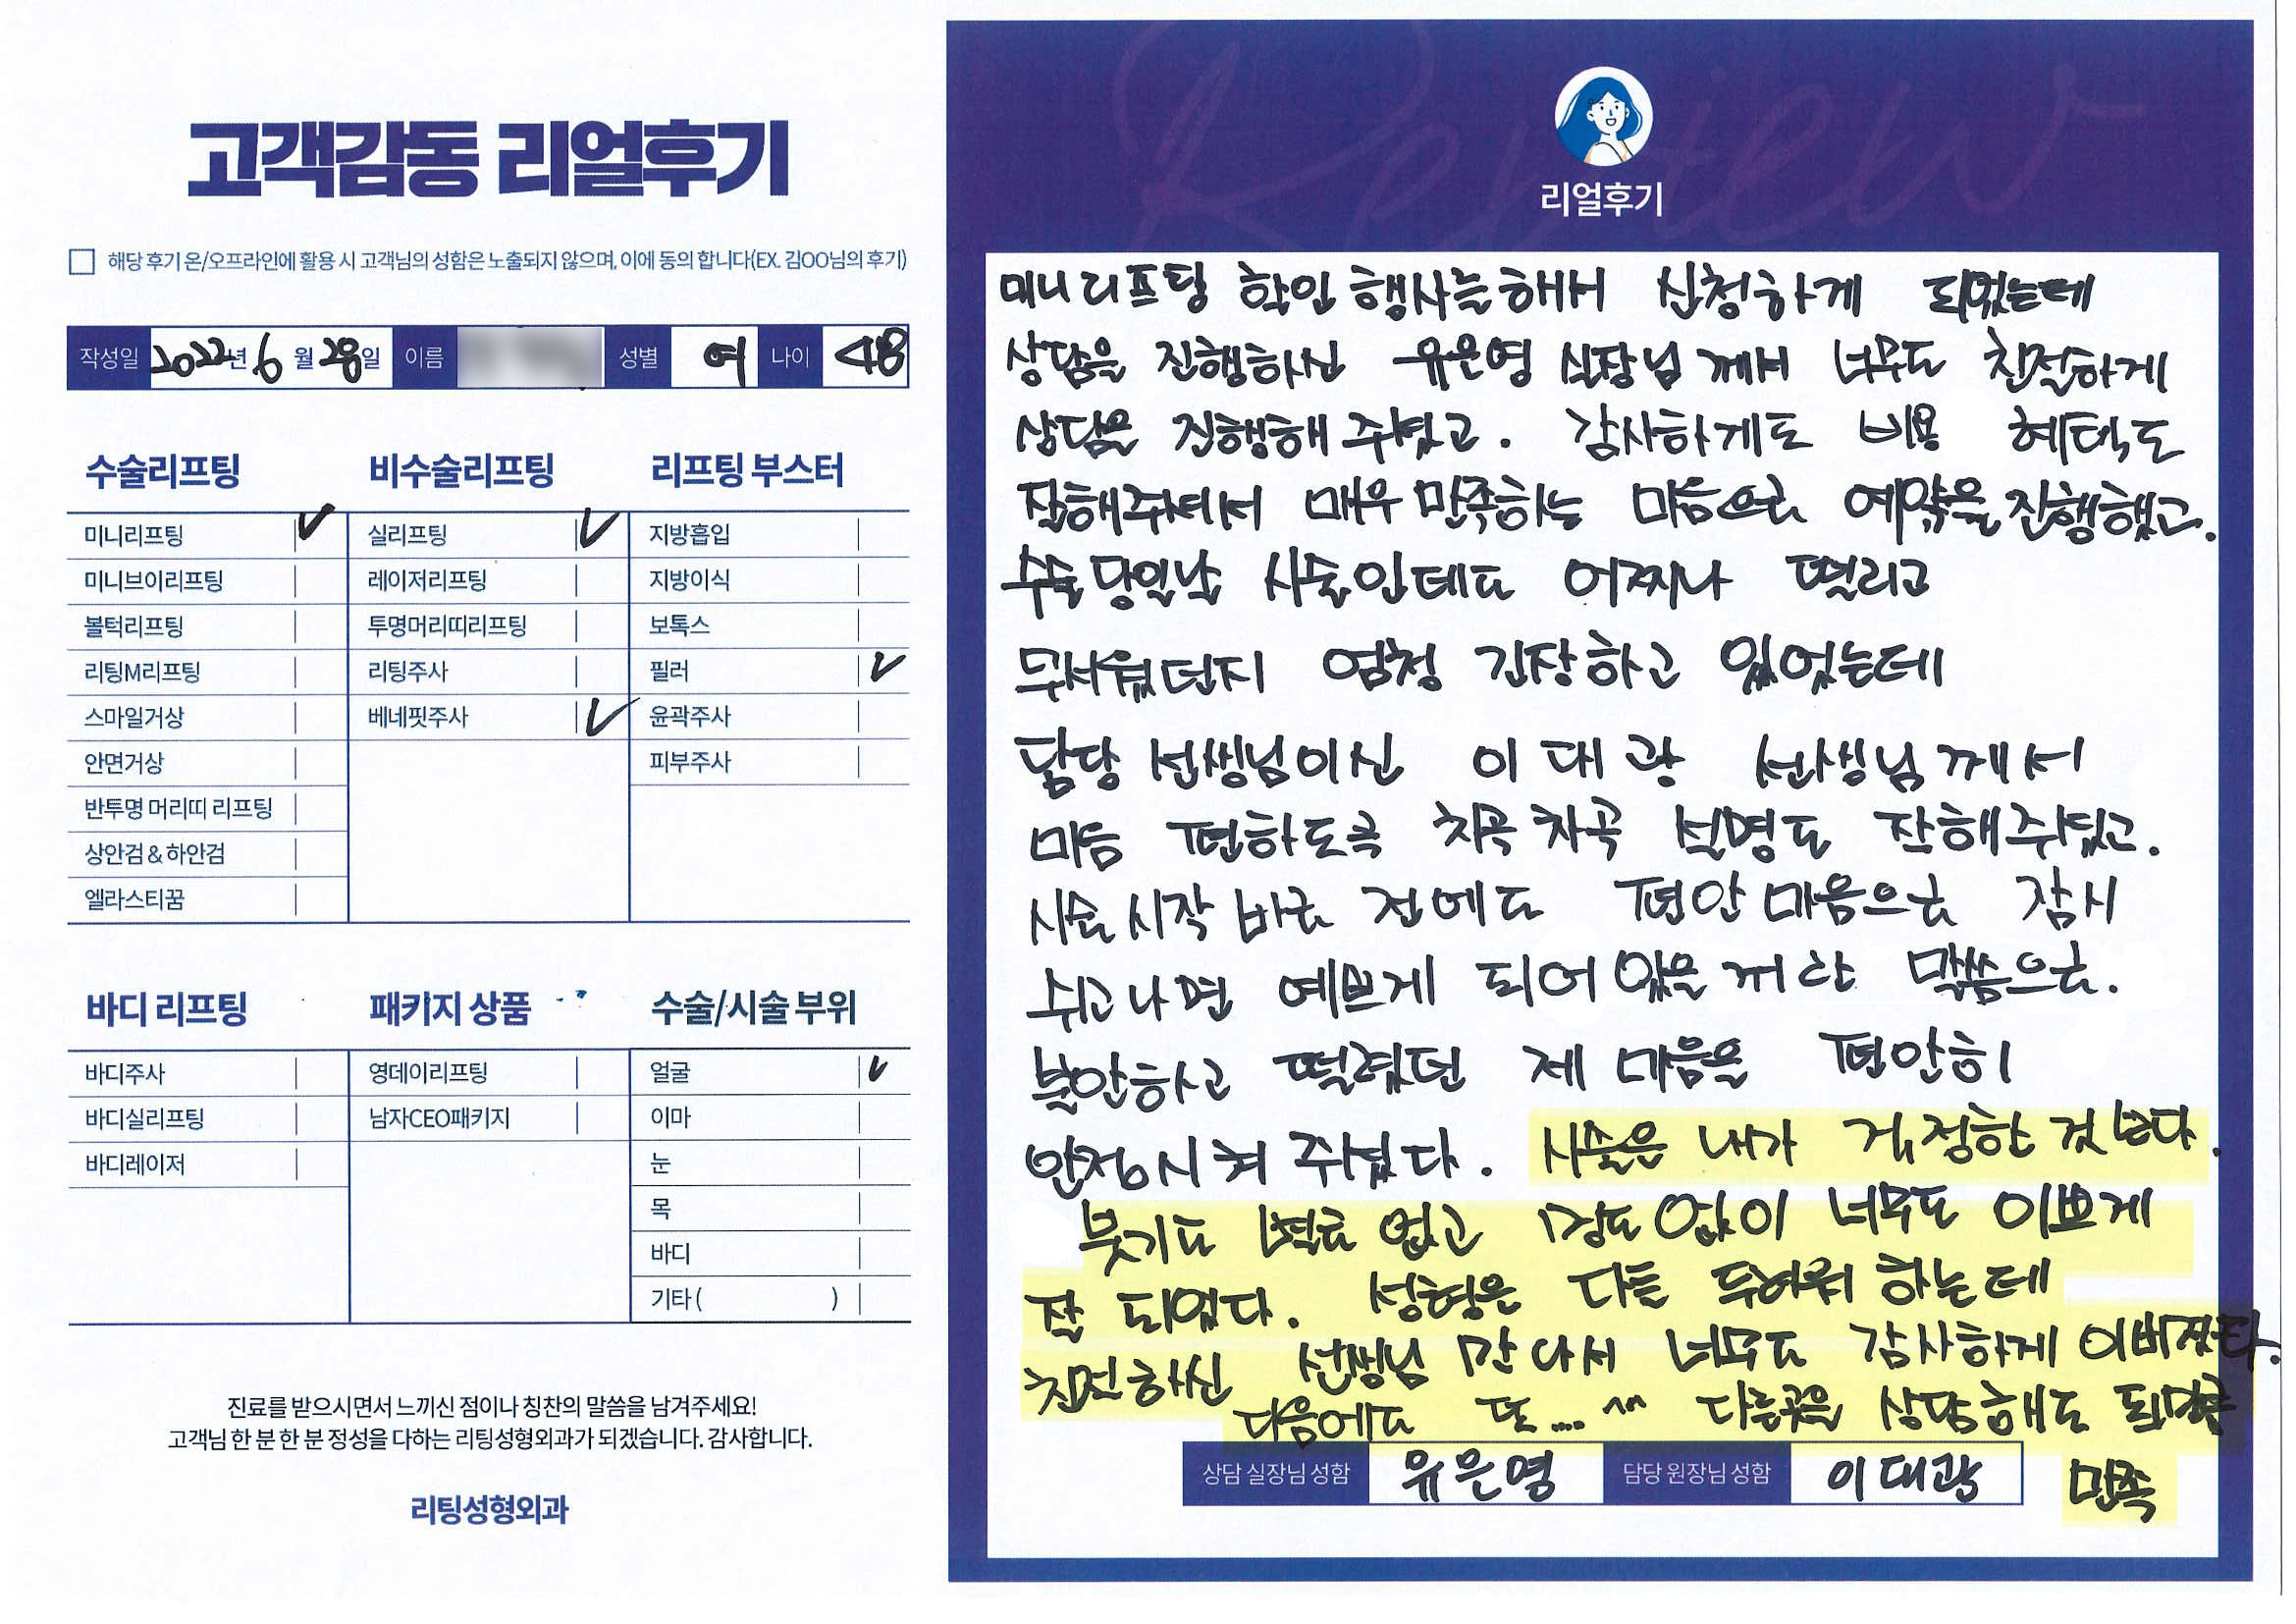 고객감동 리얼후기
해당 후기 온/오프라인에 활용 시 고객님의 성함은 노출되지 않으며, 이에 동의 합니다(EX. 김OO님의 후기)
작성일 2022년 6월 28일 이름 성별 여 나이 48
수술리프팅
미니리프팅 ✓
미니브이리프팅
볼턱리프팅
리팅M리프팅
스마일거상
안면거상
반투명 머리띠 리프팅
상안검 & 하안검
엘라스티꿈
비수술리프팅
실리프팅 ✓
레이저리프팅
투명머리띠리프팅
리팅주사
베네핏주사 ✓
리프팅 부스터
지방흡입
지방이식
보톡스
필러 ✓
윤곽주사
피부주사
바디 리프팅
바디주사
바디실리프팅
바디레이저
패키지 상품
영데이리프팅
남자CEO패키지
수술/시술 부위
얼굴 ✓
이마
눈
목
바디
기타 ( )
진료를 받으시면서 느끼신 점이나 칭찬의 말씀을 남겨주세요!
고객님 한 분 한 분 정성을 다하는 리팅성형외과가 되겠습니다. 감사합니다.
리팅성형외과
Review
리얼후기
미니리프팅 할인 행사를해서 신청하게 되었는데
상담을 진행하신 유은영 실장님께서 너무도 친절하게
상담을 진행해 주셨고. 감사하게도 비용 혜택도
잘해주셔서 매우 만족하는 마음으로 예약을 진행했고.
수술 당일날 시술인데도 어찌나 떨리고
무서웠던지 엄청 긴장하고 있었는데
담당 선생님이신 이대광 선생님께서
마음 편하도록 차곡차곡 설명도 잘해주셨고.
시술시작 바로 전에도 편안 마음으로 잠시
쉬고나면 예쁘게 되어 있을꺼란 말씀으로.
불안하고 떨렸던 제 마음을 편안히
안정시켜 주셨다. 시술은 내가 걱정한 것 보다.
붓기도 별로 없고 멍도 없이 너무도 이쁘게
잘 되었다. 성형은 다들 두려워 하는데
친절하신 선생님 만나서 너무도 감사하게 이뻐졌다.
다음에도 또.... ^^ 다른곳을 상담해도 될만큼
만족
상담 실장님 성함 유은영 담당 원장님 성함 이대광